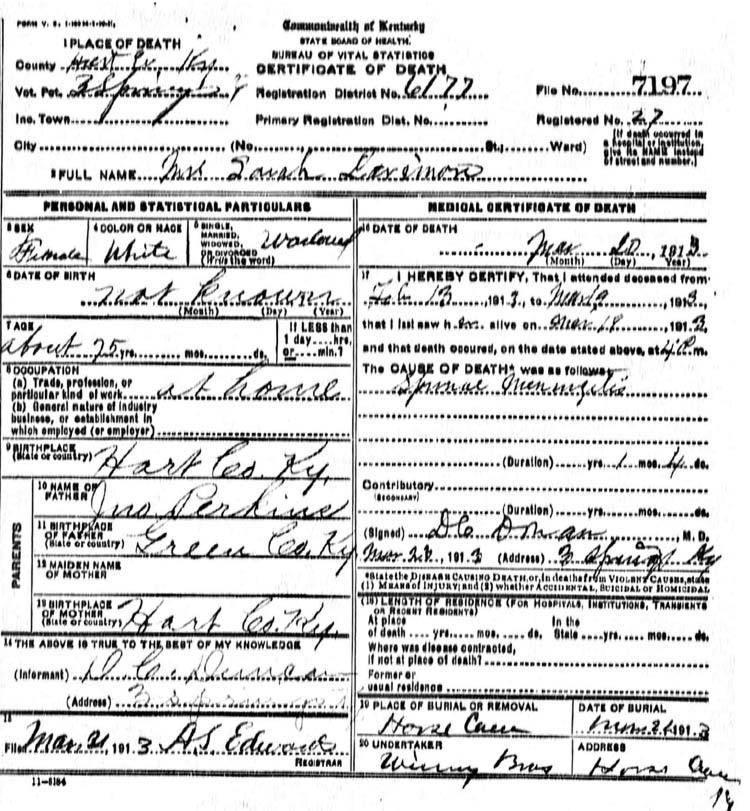 Commonwealth of Kentucky
STATE BOARD OF HEALTH
BUREAU OF VITAL STATISTICS
CERTIFICATE OF DEATH
1 PLACE OF DEATH
County Hart Co. Ky
Vot. Pct. 3 Springs
Inc. Town
City (No. St.; Ward)
Registration District No. 6177
Primary Registration Dist. No.
File No. 7197
Registered No. 27
(If death occurred in a hospital or institution, give its NAME instead of street and number.)
2 FULL NAME Mrs Sarah
PERSONAL AND STATISTICAL PARTICULARS
3 SEX Female
4 COLOR OR RACE White
5 SINGLE, MARRIED, WIDOWED OR DIVORCED (Write the word)
6 DATE OF BIRTH not known
(Month) (Day) (Year)
7 AGE about 75 yrs. mos. ds.
If LESS than 1 day hrs. or min.?
8 OCCUPATION
(a) Trade, profession, or particular kind of work at home
(b) General nature of industry business, or establishment in which employed (or employer)
9 BIRTHPLACE (State or country) Hart Co. Ky.
PARENTS
10 NAME OF FATHER Jno Perkins
11 BIRTHPLACE OF FATHER (State or country) Green Co. Ky
12 MAIDEN NAME OF MOTHER
13 BIRTHPLACE OF MOTHER (State or country) Hart Co. Ky.
14 THE ABOVE IS TRUE TO THE BEST OF MY KNOWLEDGE
(Informant) D. C.
(Address) 3 Springs
15
Filed Mar. 21, 1913 A.S. Edwards
REGISTRAR
11-5184
MEDICAL CERTIFICATE OF DEATH
16 DATE OF DEATH
Mar 20, 1913
(Month) (Day) (Year)
17 I HEREBY CERTIFY, That I attended deceased from
Feb 13, 1913, to Mar, 1913
that I last saw her alive on Mar 19, 1913,
and that death occured, on the date stated above, at 4 P.m.
The CAUSE OF DEATH* was as follows:
Spinal Meningitis
(Duration) yrs. 1 mos. 4 ds.
Contributory
(SECONDARY)
(Duration) yrs. mos. ds.
(Signed) D C M.D.
Mar, 1913 (Address) 3 Springs Ky
*State the DISEASE CAUSING DEATH, or, in deaths from VIOLENT CAUSES, state (1) MEANS OF INJURY; and (2) whether ACCIDENTAL, SUICIDAL or HOMICIDAL
(18) LENGTH OF RESIDENCE (FOR HOSPITALS, INSTITUTIONS, TRANSIENTS OR RECENT RESIDENTS)
At place of death yrs. mos. ds.
In the State yrs. mos. ds.
Where was disease contracted, if not at place of death?
Former or usual residence
19 PLACE OF BURIAL OR REMOVAL
Horse Cave
DATE OF BURIAL
Mar 21, 1913
20 UNDERTAKER
Bros
ADDRESS
Horse Cave